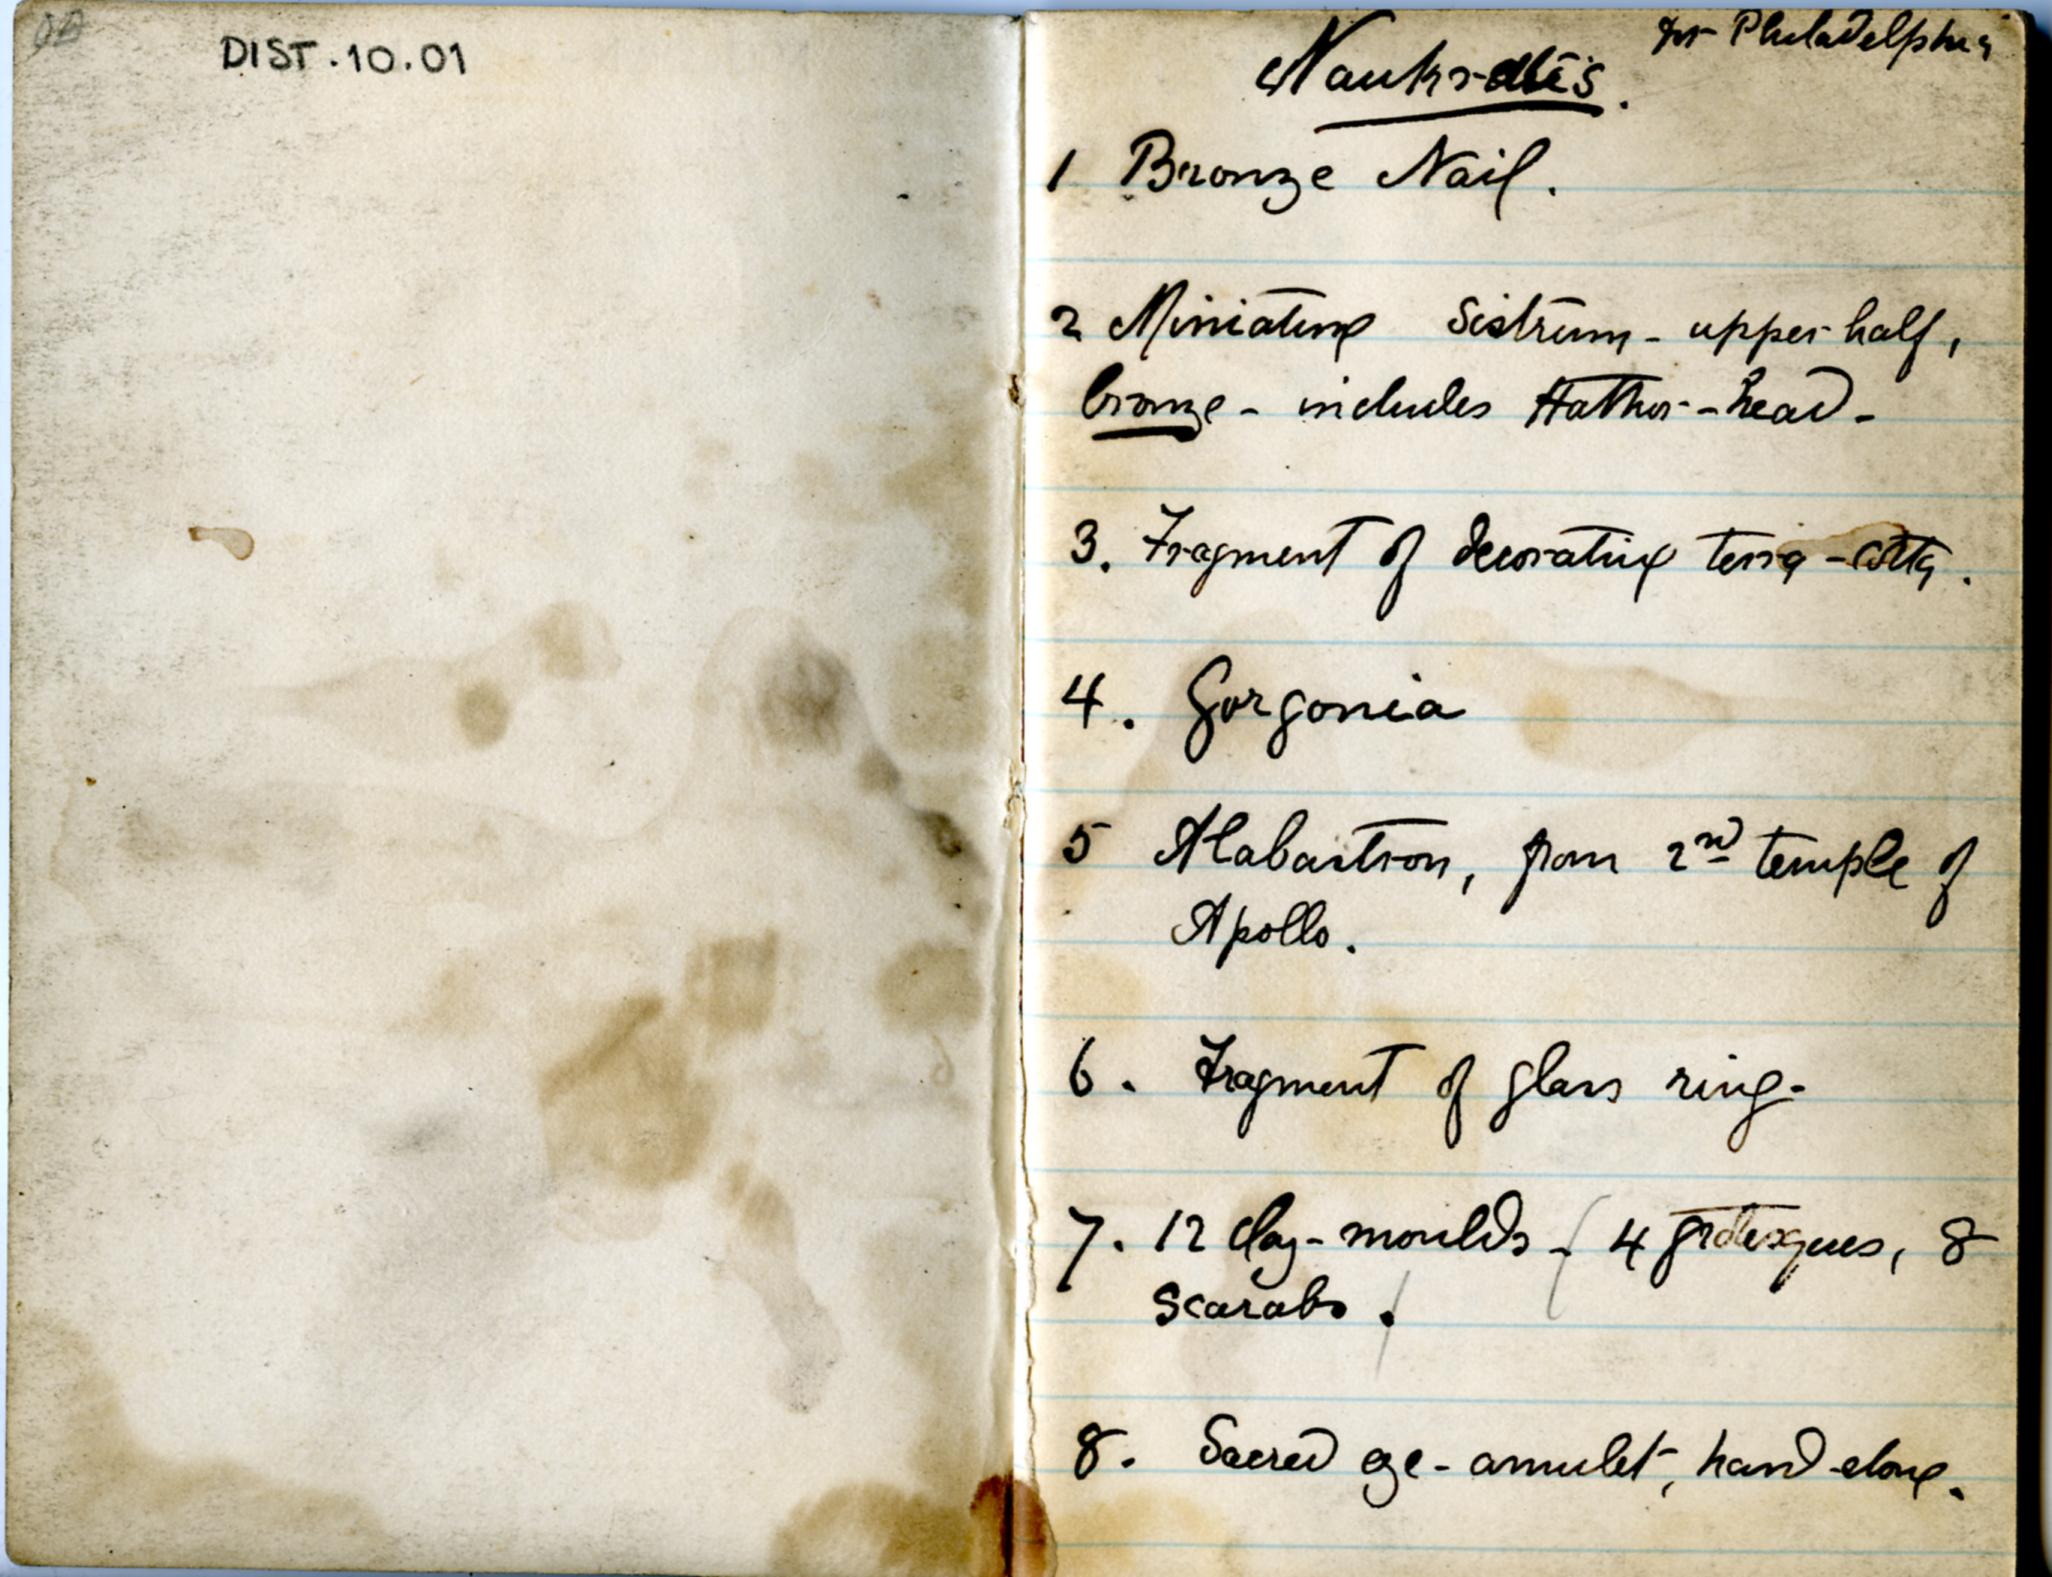 DIST.10.01
for Philadelphia
Naukratis.
1 Bronze Nail.
2 Miniature Sistrum - upper half,
bronze - includes Hathor - head -
3. Fragment of decorative terra-cotta.
4. Gorgonia
5 Alabastron, from 2nd temple of
Apollo.
6. Fragment of glass ring.
7. 12 clay-moulds - ( 4 grotesques, 8
scarabs. )
8. Sacred eye-amulet, hard stone.